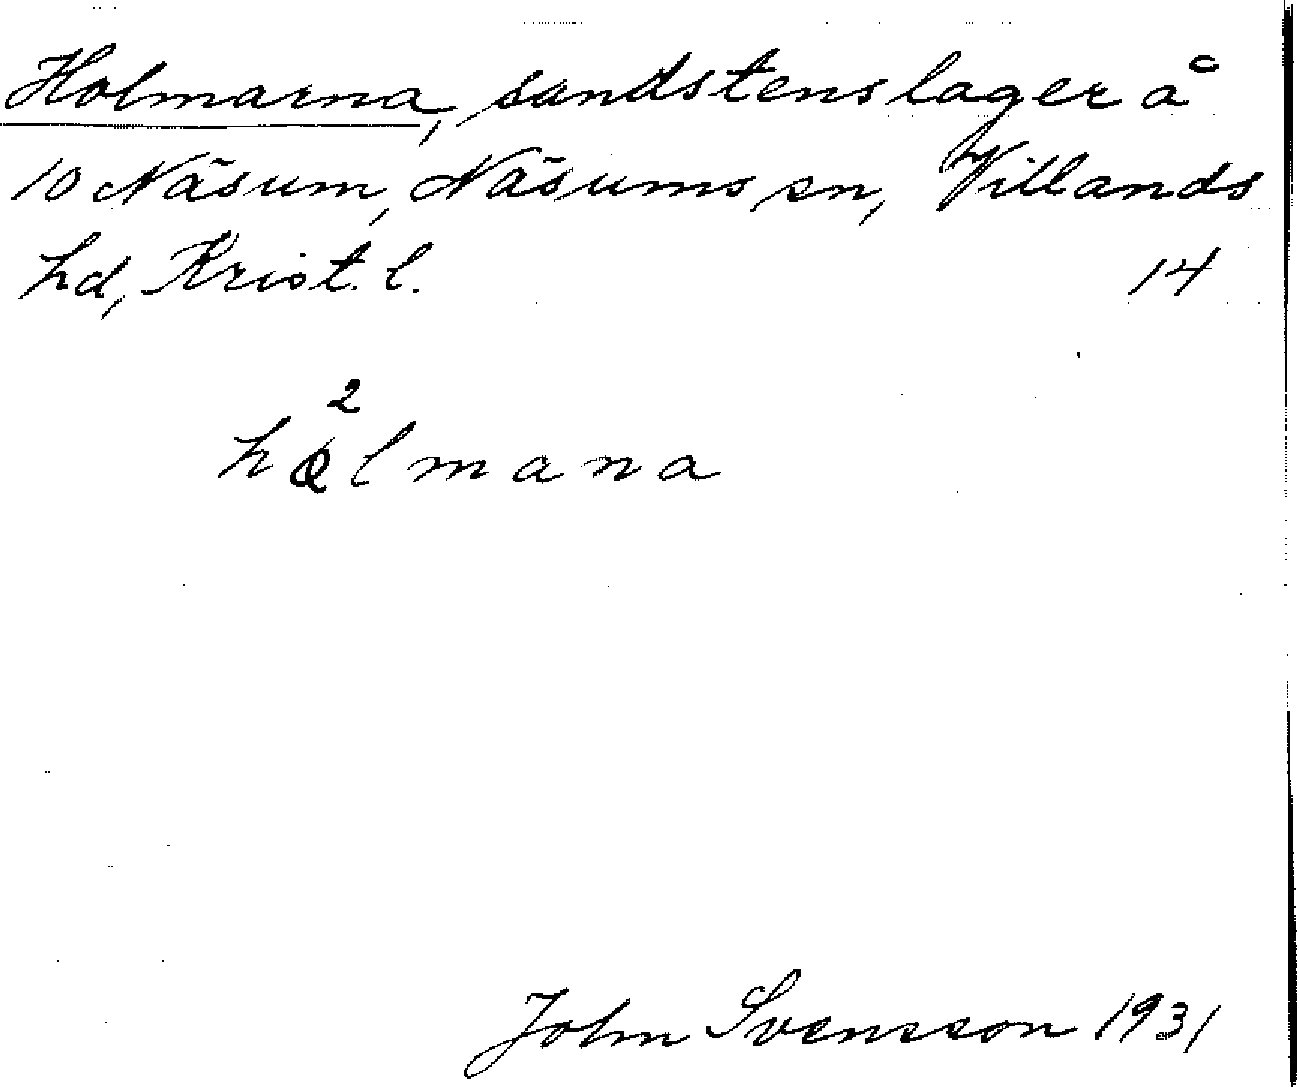 Holmarna, sandstenslager å
10 Näsum, Näsums sn, Villands
hd, Krist. l. 14
2
hålmana
John Svensson 1931